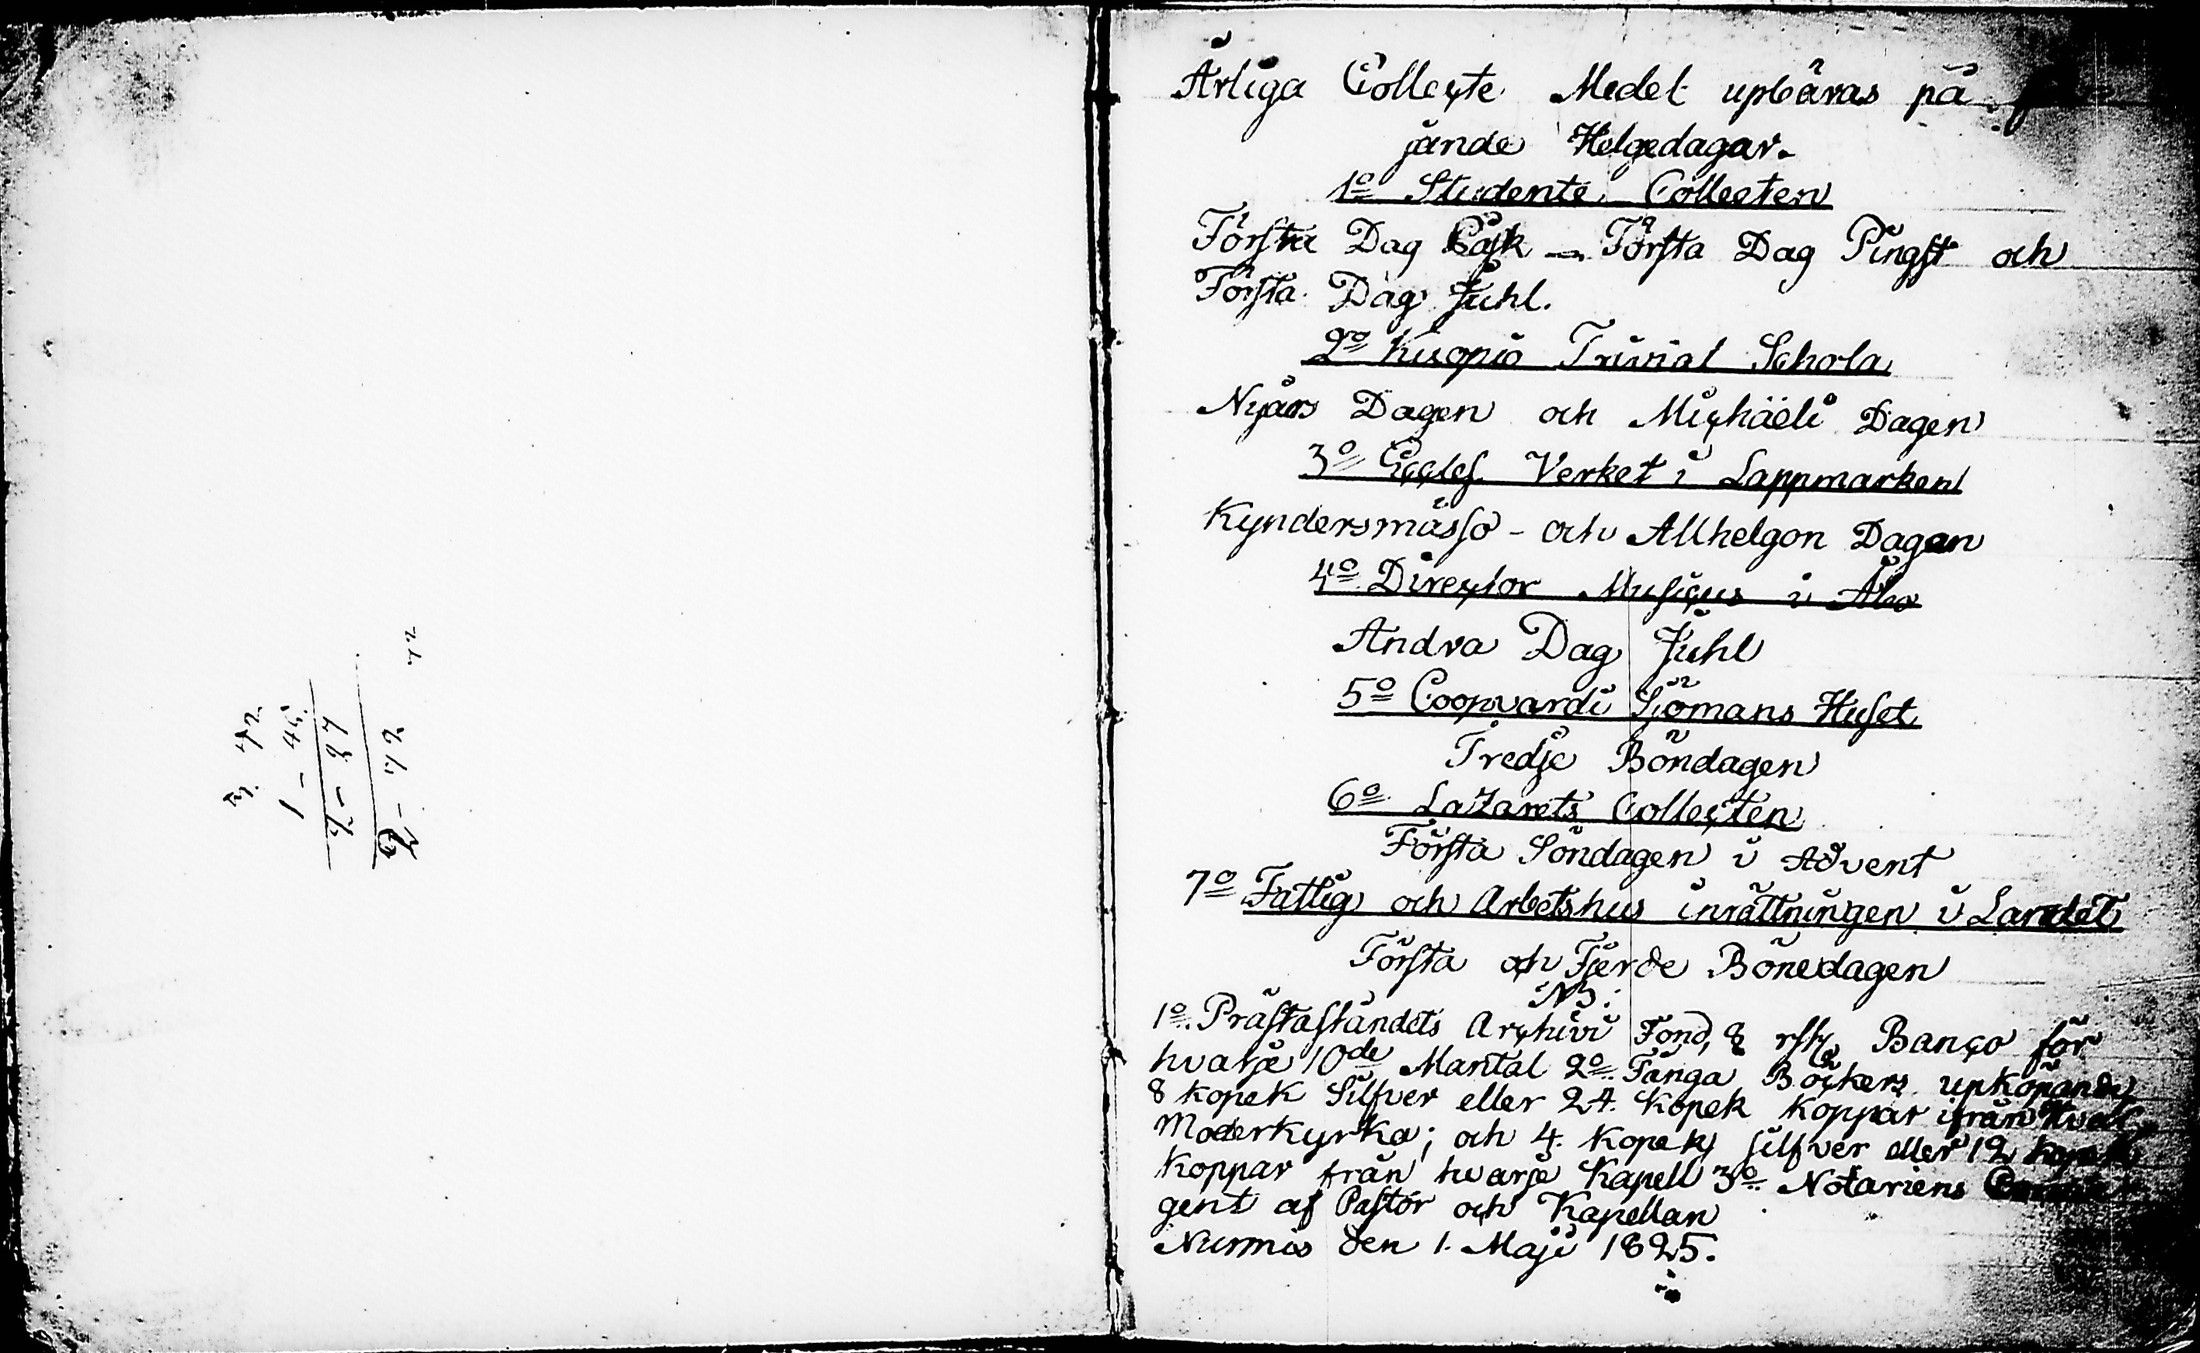 3. 42.
1 - 45.
2 - 87
2 - 72
72
Årliga Collecte Medel upbäras på
jande Helgedagar.
1o Studente Collecten
Första Dag Påsk — Första Dag Pingst och
Första Dag Juhl.
2o Kuopio Trivial Schola
Nyårs Dagen och Michäeli Dagen
3o Eccles. Verket i Lappmarken
Kyndersmässo - och Allhelgon Dagen
4o Director Musicus i Åbo
Andra Dag Juhl
5o Coopvardi Sjömans Huset
Tredje Böndagen
6o Lazarets Collecten
Första Söndagen i Advent
7o Fattig och Arbetshus inrättningen i Landet
Första och Fjerde Bönedagen
NB:
1o. Præstaståndets Archivi Fond, 8 rsk Banco för
hvarje 10de Mantal 2o. Fånga Böckers upköpande
8 kopek Silfver eller 24. kopek koppar ifrån hvar
Moderkyrka; och 4. kopek silfver eller 12 kopek
koppar från hvarje Kapell 3o. Notariens
gent af Pastor och Kapellan
Nurmis den 1. Maji 1825.